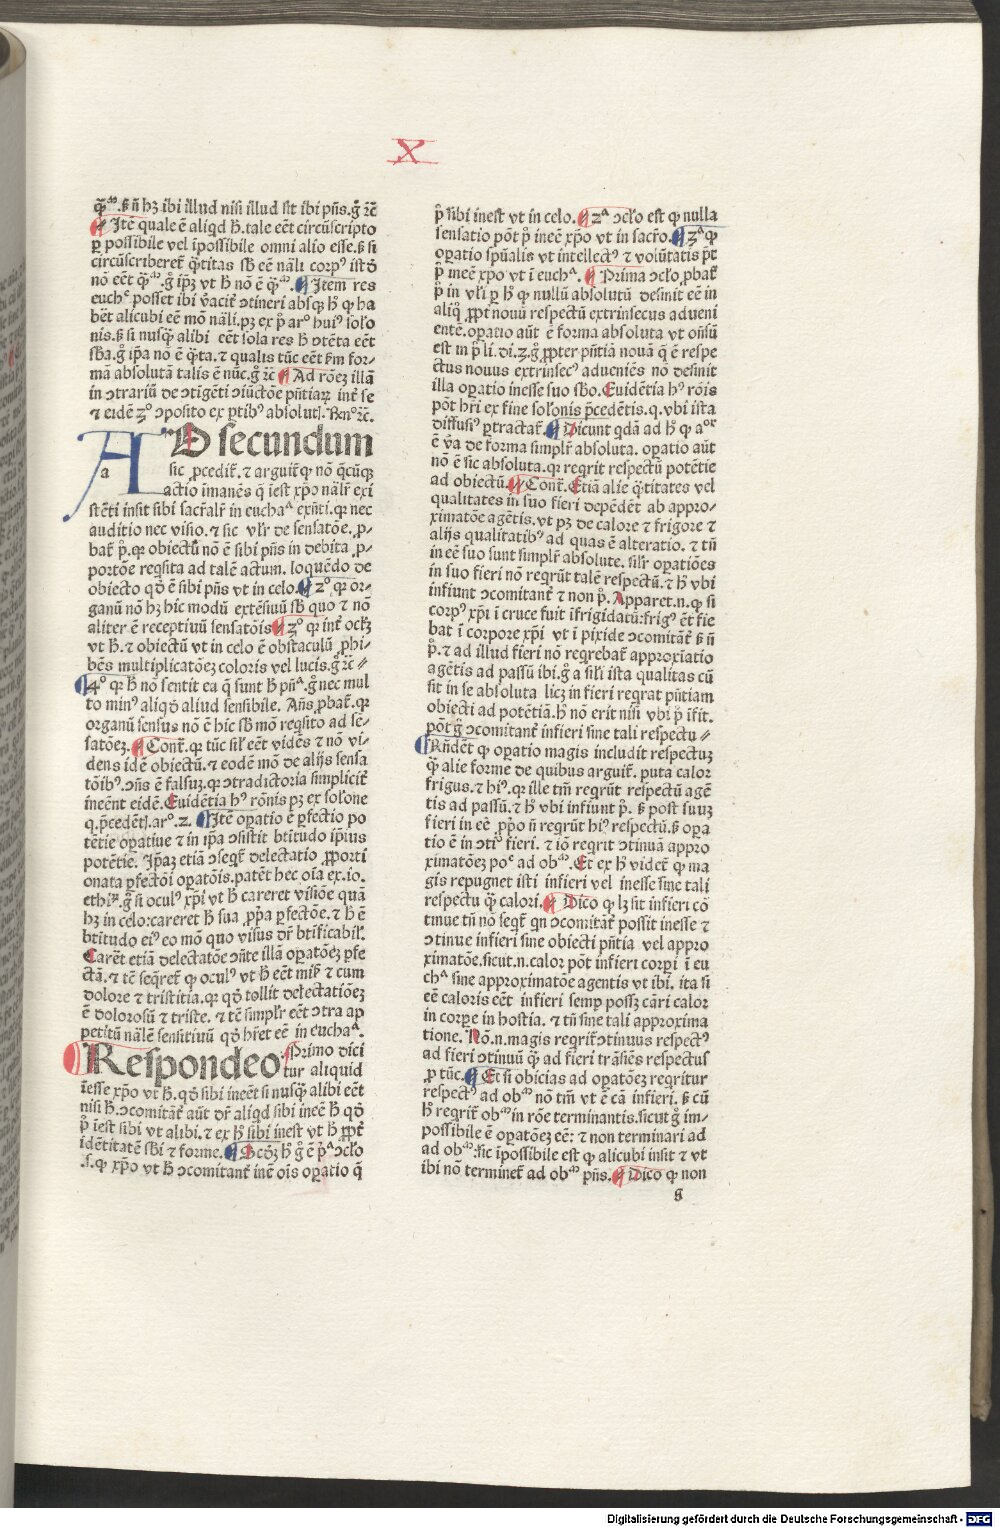 X
q̃ᵃˢ.ß ñ hꝫ ibi illud nisi illud sit ibi pñs.g̊ ⁊c̃
Itē quale ē aliqd ħ.tale eēt circũscripto
ꝑ possibile vel ĩpossibile omni alio esse.ß si
circũscriberet̃ q̃titas sƀ eē nãli corpꝰ istđ
nō eēt q̃ᵃˢ.g̊ ip̃ꝫ vt ħ nō ē q̃ᵃˢ. Item res
posset ibi v̓acit̃ ↄtineri absqꝫ ħ ꝙ ha
bēt alicubi eē mō nãli.pꝫ ex p̊ arᵒ huiꝰ solo
nis.ß si nusq̃ alibi eēt sola res ħ ↄtēta eēt
sƀa.g̊ ip̃a nō ē q̃ta.⁊ qualis tũc eēt ẜm for-
mã absolutã talis ē nũc.g̊ ⁊c̃ Ad rōeꝫ illã
in ↄtrariũ de ↄtĩgēti ↄiũctōe pñtiaꝝ int̃ se
⁊ eidē ꝫᵒ ↄposito ex ꝑtibꝰ absolut
AD secundum
a sic ꝓcedit̃.⁊ arguit̃ ꝙ nō q̃cũqꝫ
actio ĩmanēs q̃ iest xp̃o nãlr̃ exi
stēti insit sibi sacr̃alr̃ in euchaᵃ exñti.qꝛ nec
auditio nec visio.⁊ sic vlr̃ de sensatōe.ꝓ-
bat̃ p̊.qꝛ obiectũ nō ē sibi pñs in debita ꝓ-
portōe reqsita ad talē actum.loquēdo de
obiecto qđ ē sibi pñs vt in celo. 2ᵒ qꝛ or-
ganũ nō hꝫ hic modũ extēsiuũ sƀ quo ⁊ nō
aliter ē receptiuũ sensatōis ꝫᵒ qꝛ int̃ oclꝫ
vt ħ.⁊ obiectũ vt in celo ē obstaculũ ꝓhi-
bēs multiplicatōeꝫ coloris vel lucis.g̊ ⁊c̃
4ᵒ qꝛ ħ nō sentit ea q̃ sunt ħ pñᵃ.g̊ nec mul
to minꝰ aliqđ aliud sensibile. Añs ꝓbat̃.qꝛ
organũ sensus nō ē hic sƀ mō reqsito ad sē-
satōeꝫ. Cont̃.qꝛ tũc sil̃ eēt vidēs ⁊ nō vi-
dens idē obiectũ.⁊ eodē mō de alijs sensa
tōibꝰ.ↄñs ē falsuꝫ.qꝛ ↄtradictoria simplicit̃
ineēnt eidē.Euidētia hꝰ rōnis pꝫ ex solone
q.p̃cedēt.arᵒ.2. Itē oꝑatio ē ꝑfectio po
tētie oꝑatiue ⁊ in ip̃a ↄsistit btitudo ip̃ius
potētie. Ip̃aꝫ etiã ↄseqt̃ delectatio ꝓporti
onata ꝑfectōi oꝑatōis.patēt hec oĩa ex.io.
ethiꝝ.g̊ si oculꝰ xp̃i vt ħ careret visiōe quã
hꝫ in celo:careret ħ sua ꝓp̃a ꝑfectōe.⁊ ħ ē
btitudo eiꝰ eo mō quo visus dr̃ btificabil̃.
Carēt etiã delectatōe ↄñte illã oꝑatōeꝫ ꝑfe
ctã.⁊ tē seq̃ret̃ ꝙ oculꝰ vt ħ eēt mis̃ ⁊ cum
dolore ⁊ tristitia.qꝛ qđ tollit delectatiōeꝫ
ē dolorosũ ⁊ triste.⁊ tē simplr̃ eēt ↄtra ap
petitũ nãlē sensitiuũ qđ hr̃et eē in euchaᵃ.
Respondeo. Primo dici
tur aliquid
ĩesse xp̃o vt ħ.qđ sibi ineēt si nusq̃ alibi eēt
nisi ħ.ↄcomitãt̃ aũt dr̃ aliqđ sibi ineē ħ qđ
p̊ iest sibi vt alibi.⁊ ex ħ sibi inest vt ħ ꝓpt̃
idētitatē sƀi ⁊ forme. Scđꝫ ħ g̊ ē p̃ᵃ ↄclo
.s.ꝙ xp̃o vt ħ ↄcomitant̃ inē oĩs oꝑatio q̃
p̊ sibi inest vt in celo. 2ᵃ ↄclo est ꝙ nulla
sensatio pōt p̊ ineē xp̃o vt in sacr̃o. ꝫᵃ ꝙ
oꝑatio sp̃ualis vt intellectꝰ ⁊ volũtatis pt̃
p̊ ineē xp̃o vt ĩ euchᵃ. Prima ↄclo ꝓbat̃
p̊ in vl̃i ꝑ ħ ꝙ nullũ absolutũ desinit eē in
aliq̊ ꝓpt nouũ respectũ extrinsecus adueni
entē.oꝑatio aũt ē forma absoluta vt onsũ
est in p̊ li.di.ꝫ.g̊ ꝓpter pñtiã nouã q̃ ē respe
ctus nouus extrinsecꝰ adueniēs nō desinit
illa oꝑatio inesse suo sƀo.Euidētia hꝰ rōis
pōt hr̃i ex fine solonis p̃cedētis.q.vbi ista
diffusiꝰ ꝑtractat̃. Dicunt qdã ad ħ ꝙ aᵒʳ
ē v̓a de forma simplr̃ absoluta.oꝑatio aũt
nō ē sic absoluta.qꝛ reqrit respectũ potētie
ad obiectũ. Cont̃.Etiã alie q̃titates vel
qualitates in suo fieri depēdēt ab appro-
ximatōe agētis.vt pꝫ de calore ⁊ frigore ⁊
alijs qualitatibꝰ ad quas ē alteratio.⁊ tñ
in eē suo sunt simplr̃ absolute.silr̃ oꝑatiōes
in suo fieri nō reqrũt talē respectũ.⁊ ħ vbi
infiunt ↄcomitant̃ ⁊ non p̊.Apparet.n.ꝙ si
corpꝰ xp̃i ĩ cruce fuit ĩfrigidatũ:frigꝰ ēt fie
bat ĩ corpore xp̃i vt ĩ pixide ↄcomitãt̃ ß ñ
p̊.⁊ ad illud fieri nō reqrebat̃ approxiatio
agētis ad passũ ibi.g̊ a sil̃i ista qualitas cũ
sit in se absoluta licꝫ in fieri reqrat pñtiam
obiecti ad potētiã.ħ nō erit nisi vbi p̊ ĩfit.
pōt g̊ ↄcomitant̃ infieri sine tali respectu
Rñdēt ꝙ oꝑatio magis includit respectuꝫ
q̃ alie forme de quibus arguit̃.puta calor
frigus.⁊ hiꝰ.qꝛ ille tñ reqrũt respectũ agē
tis ad passũ.⁊ ħ vbi infiunt p̊.ß post suuꝫ
fieri in eē ꝓp̊o ñ reqrũt hiꝰ respectũ.ß oꝑa
tio ē in ↄtĩᵒ fieri.⁊ iō reqrit ↄtinuã appro
ximatōeꝫ poᵉ ad obᵐ.Et ex ħ videt̃ ꝙ ma
gis repugnet isti infieri vel inesse sine tali
respectu q̃ calori. Dico ꝙ lꝫ sit infieri cō
tinue tñ nō seqt̃ qn ↄcomitãt̃ possit inesse ⁊
ↄtinue infieri sine obiecti pñtia vel appro
ximatōe.sicut.n.calor pōt infieri corpi ĩ eu
chᵃ sine approximatōe agentis vt ibi.ita si
eē caloris eēt infieri semꝑ possꝫ cãri calor
in corꝑe in hostia.⁊ tñ sine tali approxima
tione. Nō.n.magis reqrit̃ ↄtinuus respectꝰ
ad fieri ↄtinuũ q̃ ad fieri trãsiēs respectus
ꝓ tũc. Et si obicias ad oꝑatōeꝫ reqritur
respectꝰ ad obᵐ nō tm̃ vt ē cã infieri.ß cũ
ħ reqrit̃ obᵐ in rōe terminantis.sicut g̊ im-
possibile ē oꝑatōeꝫ eē:⁊ non terminari ad
ad obᵐ.sic ĩpossibile est ꝙ alicubi insit ⁊ vt
ibi nō terminet̃ ad obᵐ pñs. Dico ꝙ non
g
Digitalisierung gefördert durch die Deutsche Forschungsgemeinschaft - DFG